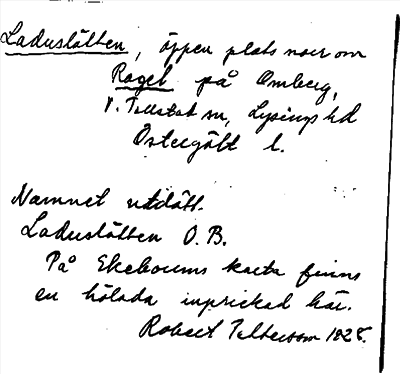 Laduslätten, öppen plats norr om
Ragel på Omberg,
V. Tollstad sn, Lysings hd
Östergötl l.
Namnet utdött.
Laduslätten O.B.
På Ekeboums karta finns
en hölada inprickad här.
Robert Pettersson 1928.